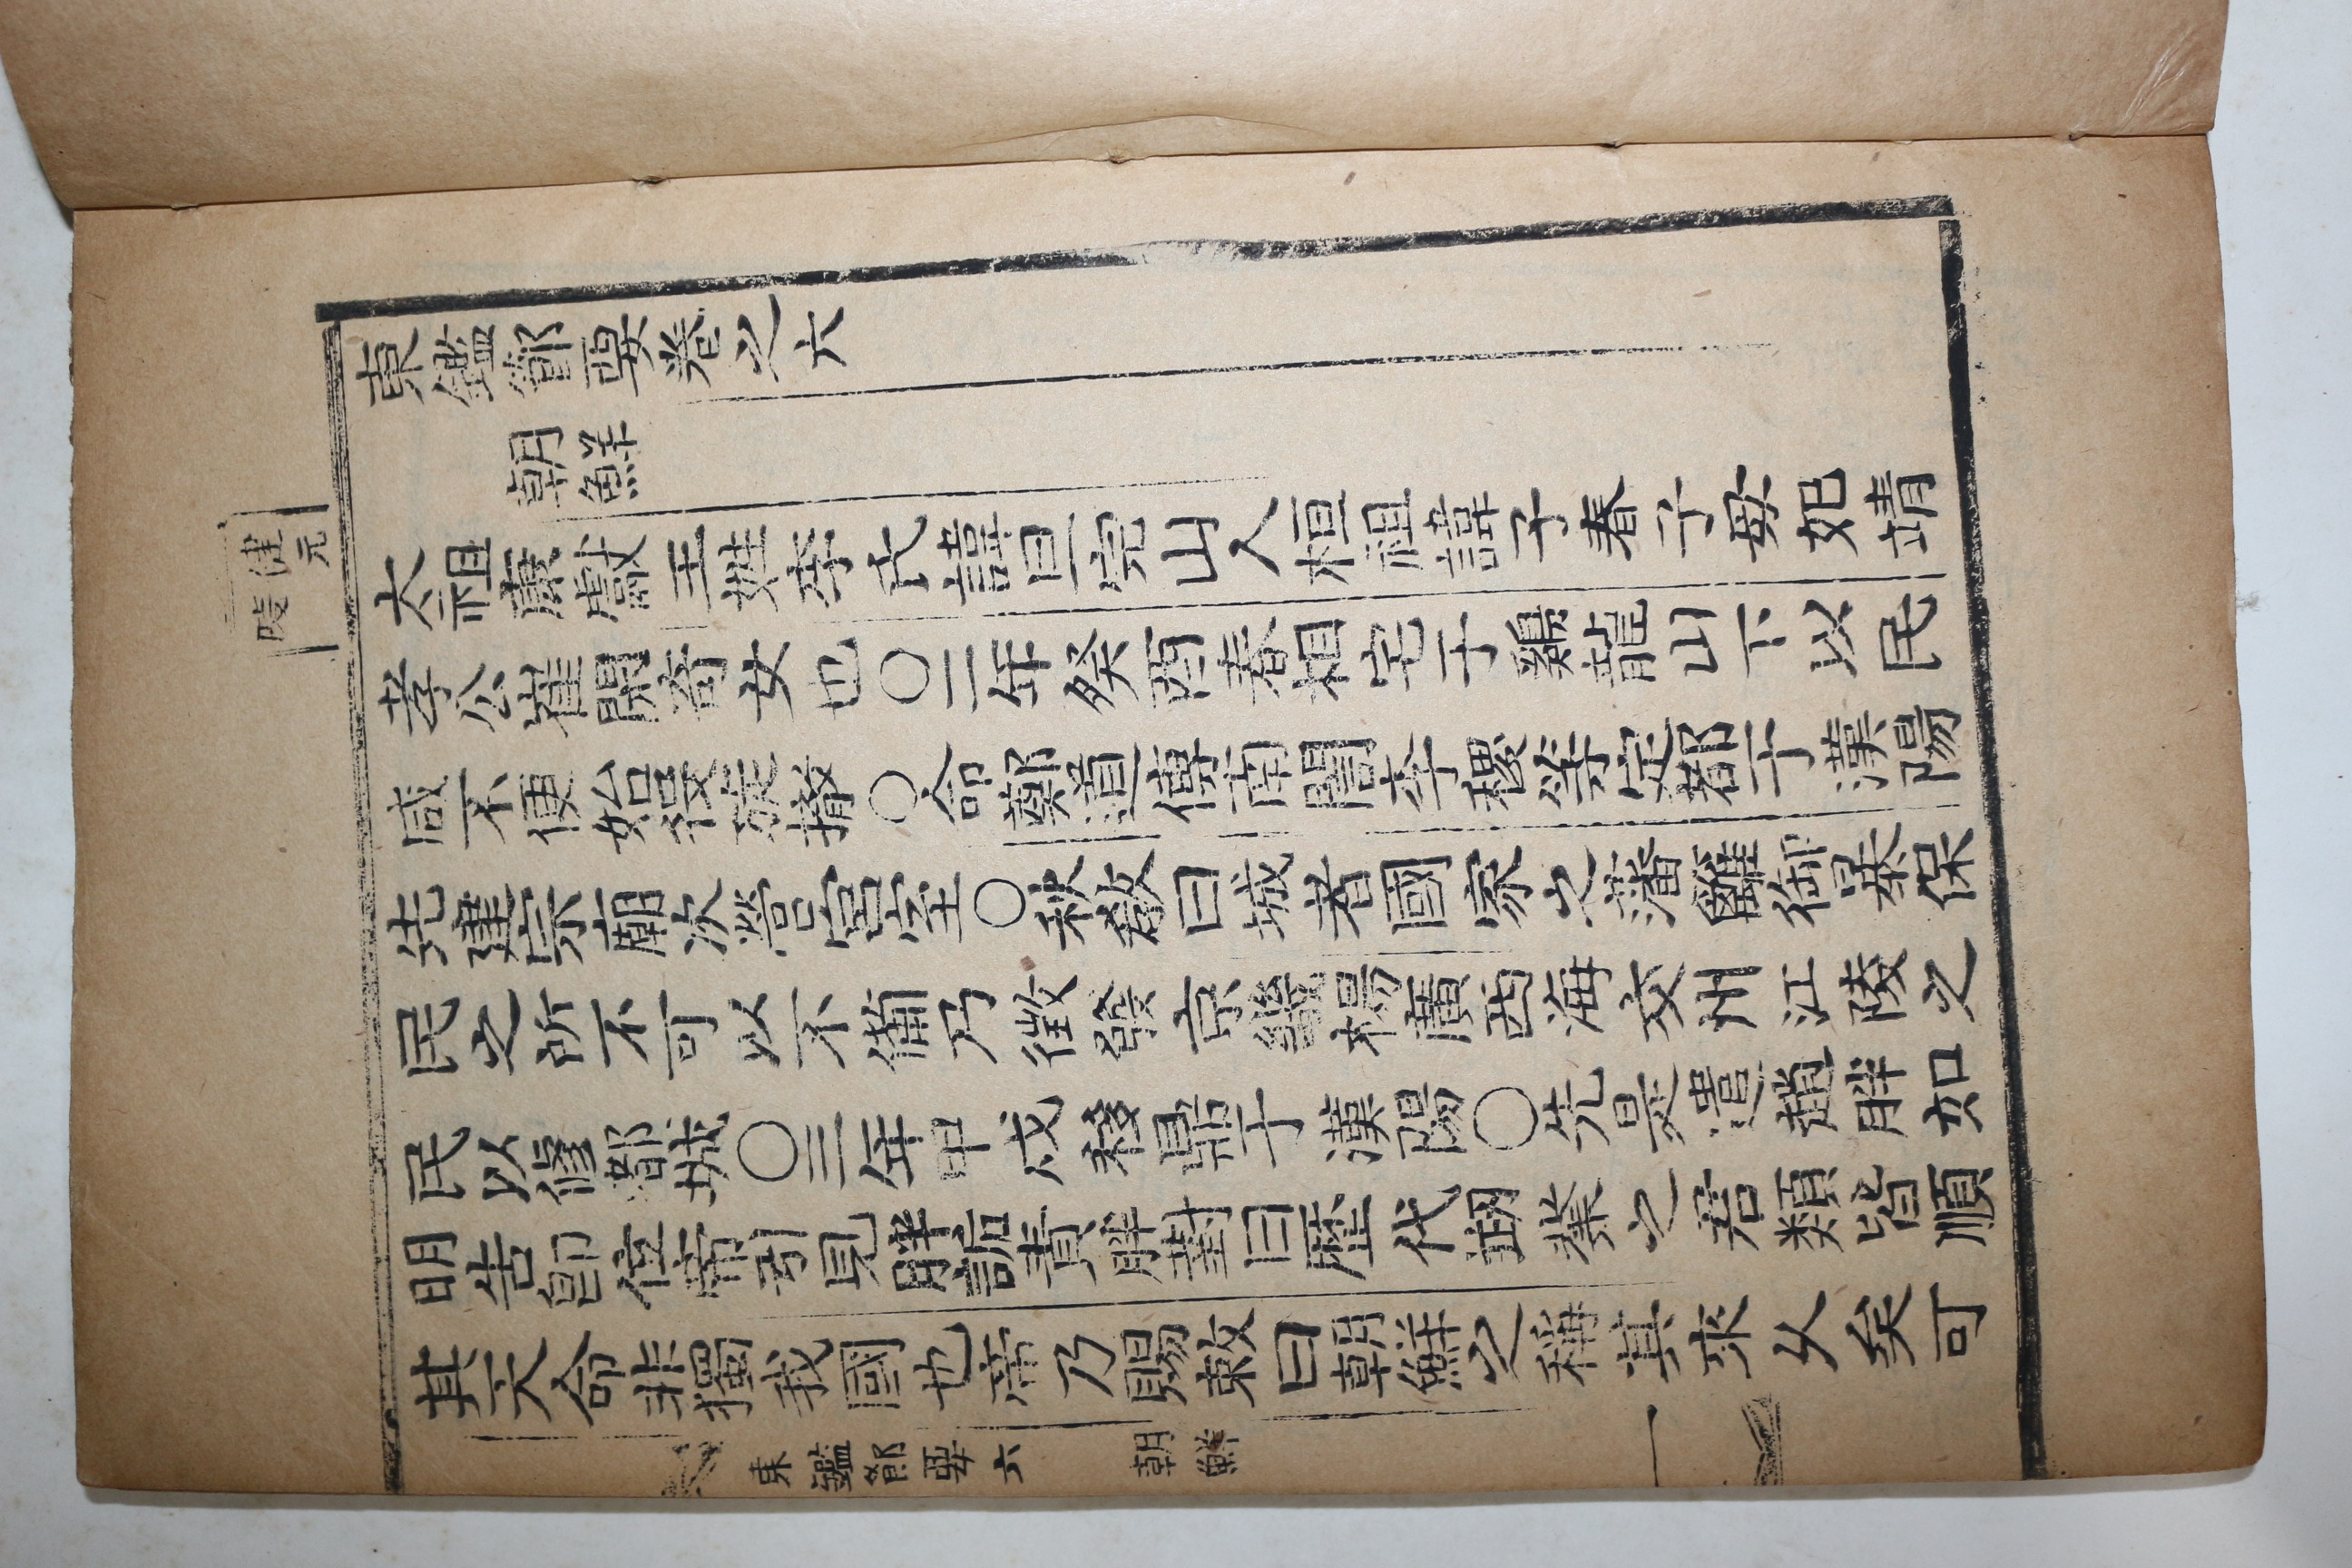 東鑑節要卷之六
朝鮮
健元
陵
太祖康獻王姓李氏諱旦完山人桓祖諱子春子母妃靖
孝公崔閑奇女也○二年癸酉春相宅于鷄龍山下以民
咸不便始役旋撤○命鄭道傳南誾李稷等定都于漢陽
先建宗廟次營宮室○秋敎曰城者國家之藩籬御暴保
民之所不可以不備乃徵發京畿楊廣西海交州江陵之
民以修都城○三年甲戌移鼎于漢陽○先是遣趙胖如
明告卽位帝引見胖詬責胖對曰歷代刱業之君類皆順
其天命非獨我國也帝乃賜敕曰朝鮮之稱其來久矣可
東鑑節要六 朝鮮 一